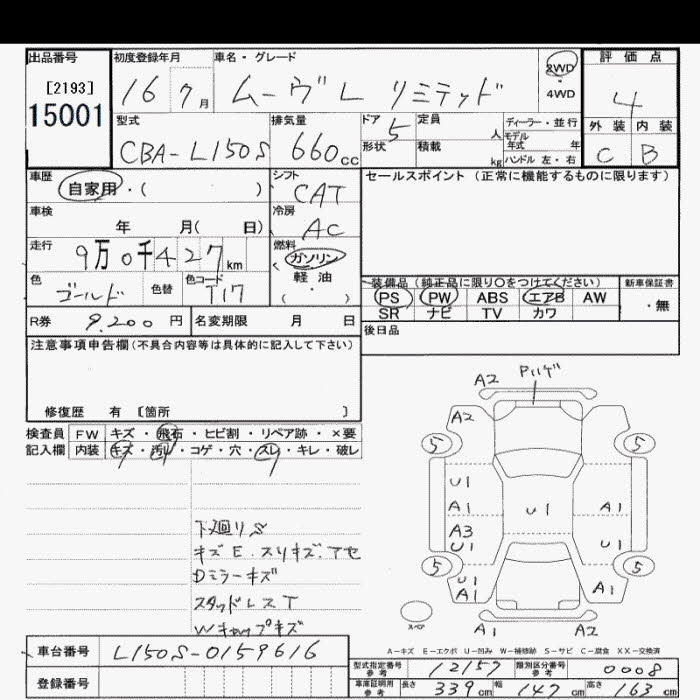 出品番号 初度登録年月 車名・グレード 2WD 評価点
[2193] 16 7月 ムーヴL リミテッド 4WD 4
15001 型式 排気量 ドア 5 定員 人 ディーラー・並行 外装 内装
CBA-L150S 660cc 形状 積載 kg モデル年式 年 C B
ハンドル 左・右
車歴 自家用・( ) シフト CAT セールスポイント (正常に機能するものに限ります)
車検 年 月( 日) 冷房 AC
走行 9万0千427km 燃料 ガソリン
軽油
( ・ )
色 ゴールド 色替 色コード T17 装備品 (純正品に限り○をつけてください) 新車保証書
PS PW ABS エアB AW ・無
R券 9,200円 名変期限 月 日 SR ナビ TV カワ
注意事項申告欄(不具合内容等は具体的に記入して下さい) 後日品
修復歴 有 〔箇所 〕
検査員 FW キズ・飛石・ヒビ割・リペア跡・×要
記入欄 内装 キズ・汚れ・コゲ・穴・スレ・キレ・破レ
下廻りS
キズE.スリキズ.アセ
Dミラーキズ
スタッドレスT
Wキャップキズ
A2 Pハゲ
A2
5 5
U1
A1 U1 A1
A3
U1 U1
5 5
U1
A1 A1
スペア A1 A2
A-キズ E-エクボ U-凹み W-補修跡 S-サビ C-腐食 XX-交換済
車台番号 L150S-0159616
型式指定番号 参考 12157 類別区分番号 参考 0008
登録番号 車庫証明用 参考 長さ 339cm 幅 147cm 高さ 163cm